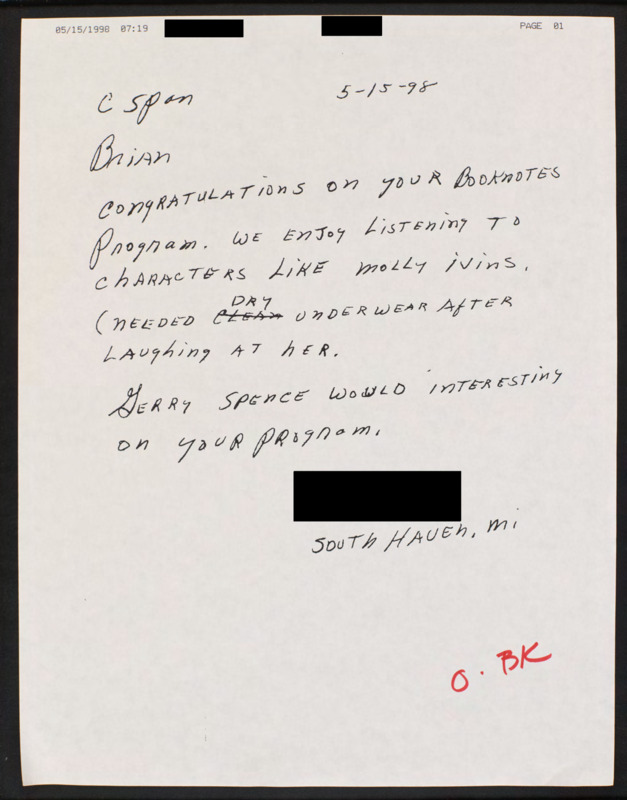 05/15/1998 07:19 PAGE 01
C Span 5-15-98
Brian
Congratulations on your Booknotes
Program. We enjoy listening to
characters like Molly Ivins.
(needed clean dry underwear after
laughing at her.
Gerry Spence would interesting
on your program.
South Haven, Mi
O. BK